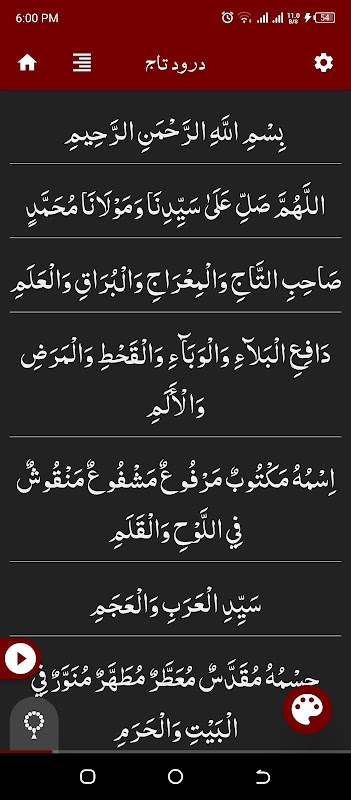 6:00 PM 11.0 B/S 54
درود تاج
بِسْمِ اللَّهِ الرَّحْمَنِ الرَّحِيمِ
اللَّهُمَّ صَلِّ عَلَىٰ سَيِّدِنَا وَمَوْلَانَا مُحَمَّدٍ
صَاحِبِ التَّاجِ وَالْمِعْرَاجِ وَالْبُرَاقِ وَالْعَلَمِ
دَافِعِ الْبَلَآءِ وَالْوَبَآءِ وَالْقَحْطِ وَالْمَرَضِ
وَالْأَلَمِ
اِسْمُهُ مَكْتُوبٌ مَرْفُوعٌ مَشْفُوعٌ مَنْقُوشٌ
فِي اللَّوْحِ وَالْقَلَمِ
سَيِّدِ الْعَرَبِ وَالْعَجَمِ
جِسْمُهُ مُقَدَّسٌ مُعَطَّرٌ مُطَهَّرٌ مُنَوَّرٌ فِي
الْبَيْتِ وَالْحَرَمِ